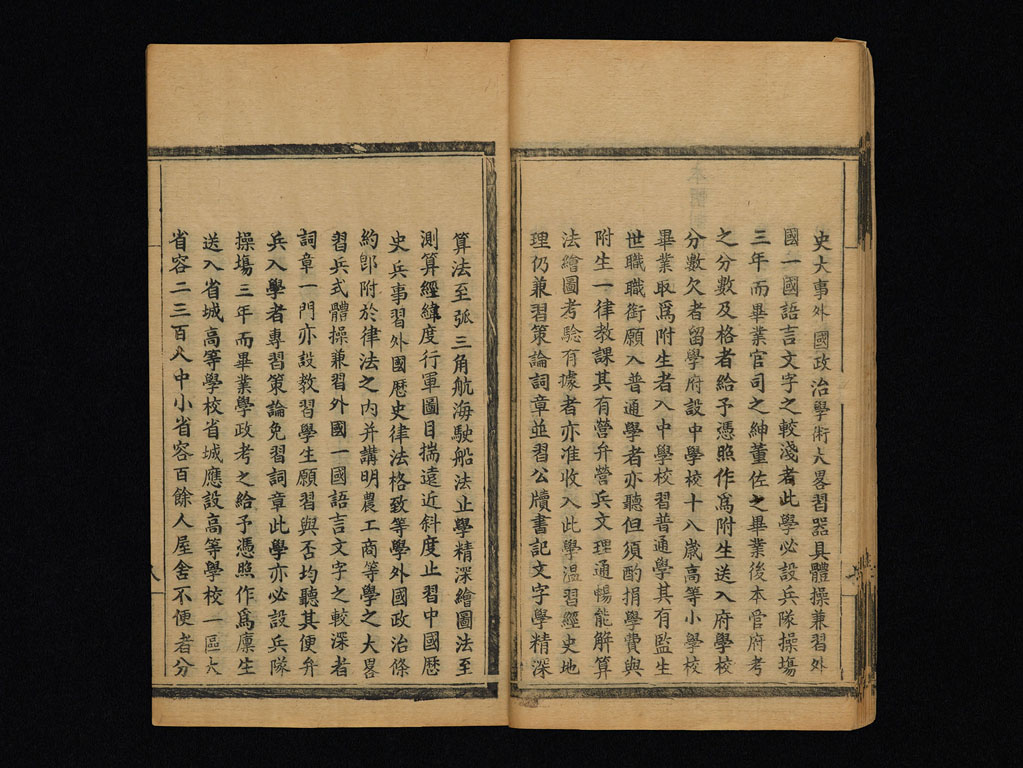 史大事外國政治學術大畧習器具體操兼習外
國一國語言文字之較淺者此學必設兵隊操塲
三年而畢業官司之紳董佐之畢業後本管府考
之分數及格者給予憑照作爲附生送入府學校
分數欠者留學府設中學校十八歲高等小學校
畢業取爲附生者入中學校習普通學其有監生
世職職銜願入普通學者亦聽但須酌捐學費與
附生一律教課其有營弁營兵文理通暢能解算
法繪圖考驗有據者亦准收入此學温習經史地
理仍兼習策論詞章並習公牘書記文字學精深
算法至弧三角航海駛船法止學精深繪圖法至
測算經緯度行軍圖目揣遠近斜度止習中國歷
史兵事習外國歷史律法格致等學外國政治條
約卽附於律法之内并講明農工商等學之大畧
習兵式體操兼習外國一國語言文字之較深者
詞章一門亦設教習學生願習與否均聽其便弁
兵入學者專習策論免習詞章此學亦必設兵隊
操塲三年而畢業學政考之給予憑照作爲廩生
送入省城高等學校省城應設高等學校一區大
省容二三百人中小省容百餘人屋舍不便者分